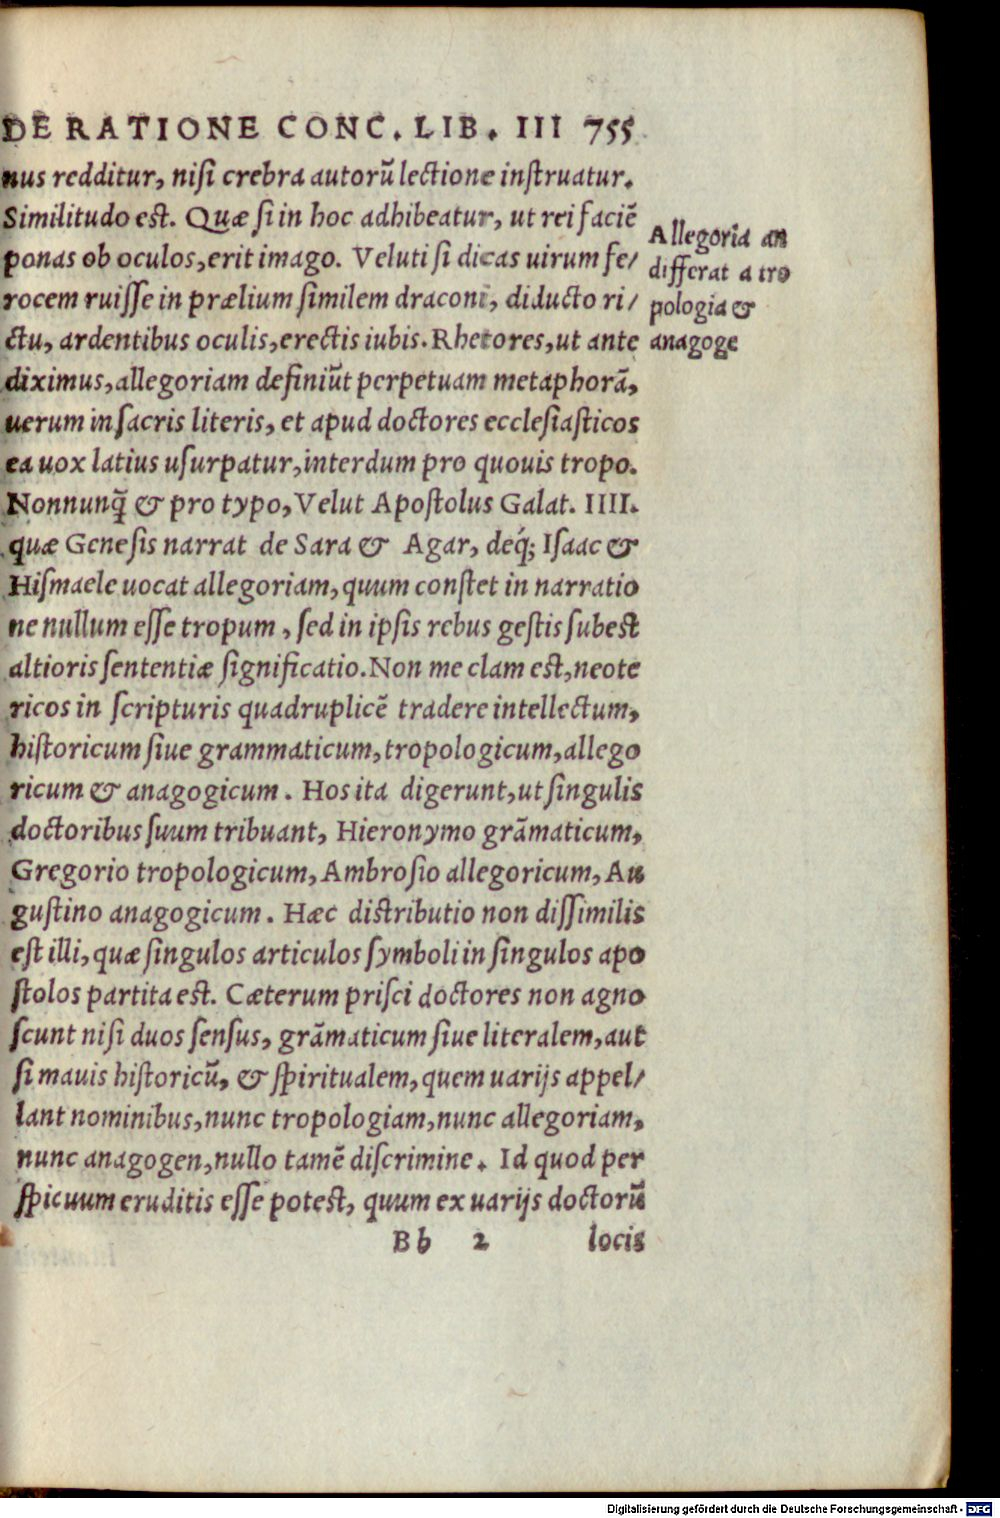 DE RATIONE CONC. LIB. III 755
nus redditur, nisi crebra autorū lectione instruatur.
Similitudo est. Quæ si in hoc adhibeatur, ut rei faciē
ponas ob oculos, erit imago. Veluti si dicas uirum fe/
rocem ruisse in prælium similem draconi, diducto ri/
ctu, ardentibus oculis, erectis iubis. Rhetores, ut ante
diximus, allegoriam definiūt perpetuam metaphorā,
uerum in sacris literis, et apud doctores ecclesiasticos
ea uox latius usurpatur, interdum pro quouis tropo.
Nonnunq̃ & pro typo, Velut Apostolus Galat. IIII.
quæ Genesis narrat de Sara & Agar, deq́; Isaac &
Hismaele uocat allegoriam, quum constet in narratio
ne nullum esse tropum, sed in ipsis rebus gestis subest
altioris sententiæ significatio. Non me clam est, neote
ricos in scripturis quadruplicē tradere intellectum,
historicum siue grammaticum, tropologicum, allego
ricum & anagogicum. Hos ita digerunt, ut singulis
doctoribus suum tribuant, Hieronymo grāmaticum,
Gregorio tropologicum, Ambrosio allegoricum, Au
gustino anagogicum. Hæc distributio non dissimilis
est illi, quæ singulos articulos symboli in singulos apo
stolos partita est. Cæterum prisci doctores non agno
scunt nisi duos sensus, grāmaticum siue literalem, aut
si mauis historicū, & spiritualem, quem uarijs appel/
lant nominibus, nunc tropologiam, nunc allegoriam,
nunc anagogen, nullo tamē discrimine. Id quod per
spicuum eruditis esse potest, quum ex uarijs doctorū
Bb 2 locis
Allegoria an
differat a tro
pologia &
anagoge
Digitalisierung gefördert durch die Deutsche Forschungsgemeinschaft - DFG